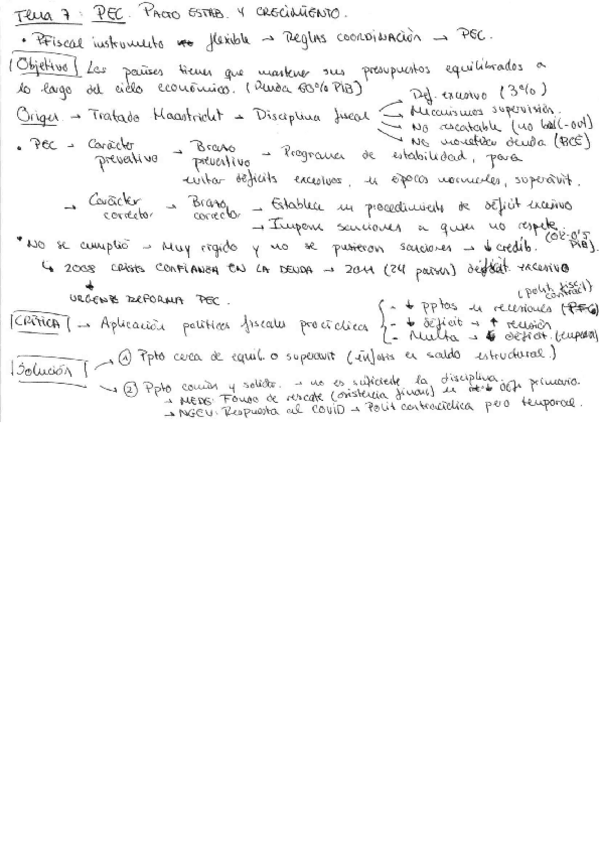 Tema 7: PEC. PACTO ESTAB. Y CRECIMIENTO.
• PFiscal instrumento flexible → Reglas COORDINACIÓN → PEC.
Objetivo Los países tienen que mantener sus presupuestos equilibrados a
lo largo del ciclo económico. (Deuda 60% PIB)
Def. excesivo (3%)
Origen → Tratado Maastricht → Disciplina fiscal → Mecanismos supervisión.
→ No rescatable (no bail-out)
→ No monetiza deuda (BCE)
• PEC → Carácter preventivo → Brazo preventivo → Programa de estabilidad, para
evitar déficits excesivos, en épocas normales, superávit.
→ Carácter corrector → Brazo corrector → Establece un procedimiento de déficit excesivo
→ Impone sanciones a quien no respete. (0'2-0'5 PIB).
• No se cumplió → Muy rígido y no se pusieron sanciones → ↓ credib.
↳ 2008 CRISIS CONFIANZA EN LA DEUDA → 2011 (24 países) déficit excesivo
↓
URGENTE REFORMA PEC.
(polit. fiscal contract)
CRÍTICA → Aplicación políticas fiscales procíclicas { - ↓ pptos en recesiones
- ↓ déficit → ↑ recesión
- Multa → déficit.
Solución → ① Ppto cerca de equilib. o superávit (énfasis en saldo estructural.)
→ ② Ppto común y solido. → no es suficiente la disciplina.
→ MEDE: Fondo de rescate (asistencia financ) en déf. primario.
→ NGEU: Respuesta al COVID → Polit contracíclica pero temporal.